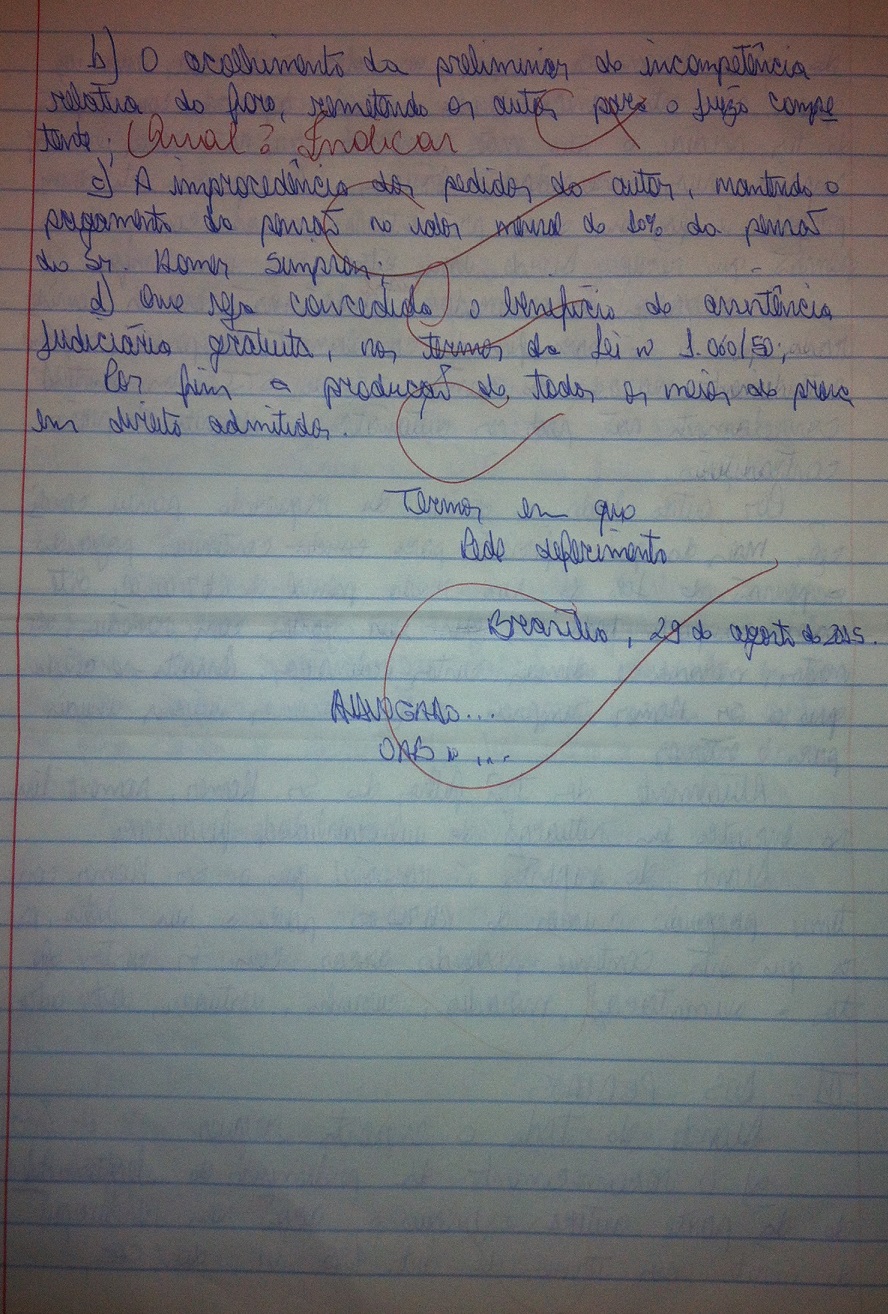 b) O acolhimento da preliminar de incompetência
relativa do foro, remetendo os autos para o juízo compe
tente; (Qual? Indicar
c) A improcedência dos pedidos do autor, mantendo o
pagamento da pensão no valor mensal de 10% da pensão
do Sr. Homer Simpson;
d) Que seja concedido o benefício de assistência
judiciária gratuita, nos termos da lei nº 1.060/50;
Por fim a produção de todos os meios de prova
em direito admitidos.
Termos em que
Pede deferimento
Brasília, 29 de agosto de 2015.
ADVOGADO...
OAB nº ....